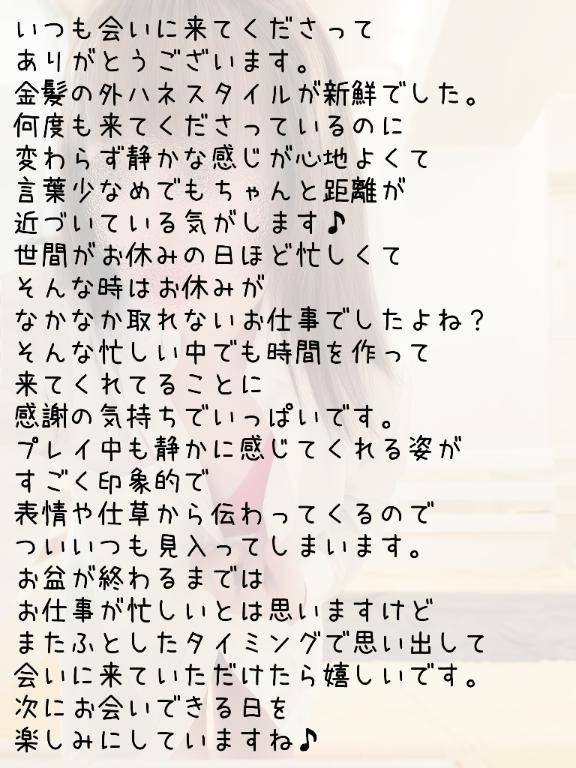 いつも会いに来てくださって
ありがとうございます。
金髪の外ハネスタイルが新鮮でした。
何度も来てくださっているのに
変わらず静かな感じが心地よくて
言葉少なめでもちゃんと距離が
近づいている気がします♪
世間がお休みの日ほど忙しくて
そんな時はお休みが
なかなか取れないお仕事でしたよね？
そんな忙しい中でも時間を作って
来てくれてることに
感謝の気持ちでいっぱいです。
プレイ中も静かに感じてくれる姿が
すごく印象的で
表情や仕草から伝わってくるので
ついいつも見入ってしまいます。
お盆が終わるまでは
お仕事が忙しいとは思いますけど
またふとしたタイミングで思い出して
会いに来ていただけたら嬉しいです。
次にお会いできる日を
楽しみにしていますね♪